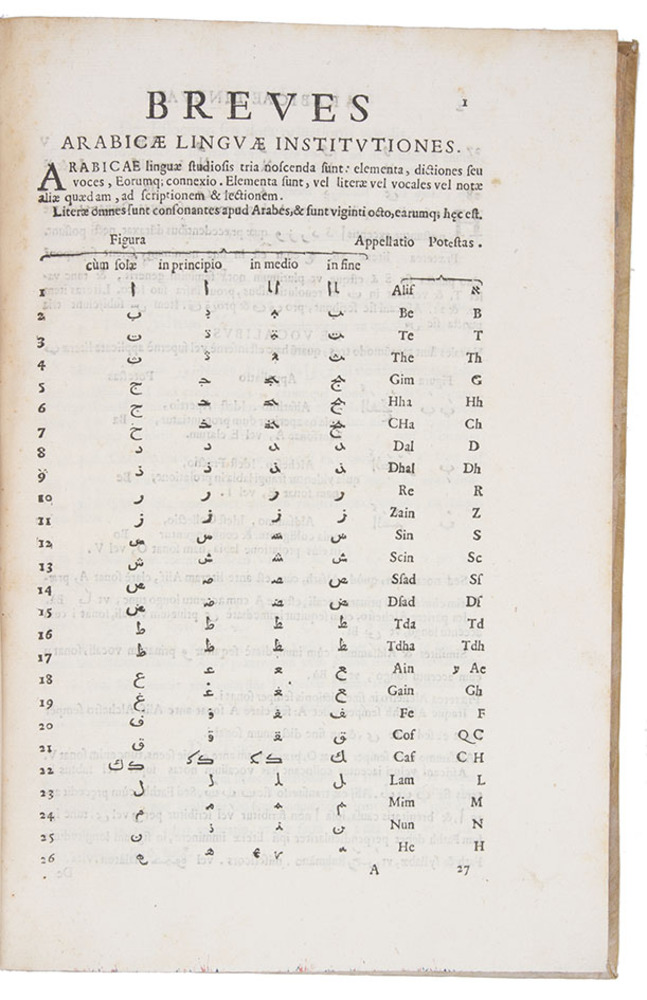 BREVES 1
ARABICÆ LINGVÆ INSTITVTIONES.
ARABICAE linguæ ſtudioſis tria noſcenda ſunt: elementa, dictiones ſeu
voces, Eorumq; connexio. Elementa ſunt, vel literæ vel vocales vel notæ
aliæ quædam, ad ſcriptionem & lectionem.
Literæ omnes ſunt conſonantes apud Arabes, & ſunt viginti octo, earumq; hęc eſt.
Figura Appellatio Poteſtas.
cùm ſolæ in principio in medio in fine
1 ا ا ـا ـا Alif א
2 ب بـ ـبـ ـب Be B
3 ت تـ ـتـ ـت Te T
4 ث ثـ ـثـ ـث The Th
5 ج جـ ـجـ ـج Gim G
6 ح حـ ـحـ ـح Hha Hh
7 خ خـ ـخـ ـخ CHa Ch
8 د د ـد ـد Dal D
9 ذ ذ ـذ ـذ Dhal Dh
10 ر ر ـر ـر Re R
11 ز ز ـز ـز Zain Z
12 س سـ ـسـ ـس Sin S
13 ش شـ ـشـ ـش Scin Sc
14 ص صـ ـصـ ـص Sſad Sſ
15 ض ضـ ـضـ ـض Dſad Dſ
16 ط ط ـط ـط Tda Td
17 ظ ظ ـظ ـظ Tdha Tdh
18 ع عـ ـعـ ـع Ain ע Ae
19 غ غـ ـغـ ـغ Gain Gh
20 ف فـ ـفـ ـف Fe F
21 ق قـ ـقـ ـق Cof Q C
22 ك كـ ـكـ ـك Caf C H
23 ل لـ ـلـ ـل Lam L
24 م مـ ـمـ ـم Mim M
25 ن نـ ـنـ ـن Nun N
26 ه هـ ـهـ ـه He H
A 27